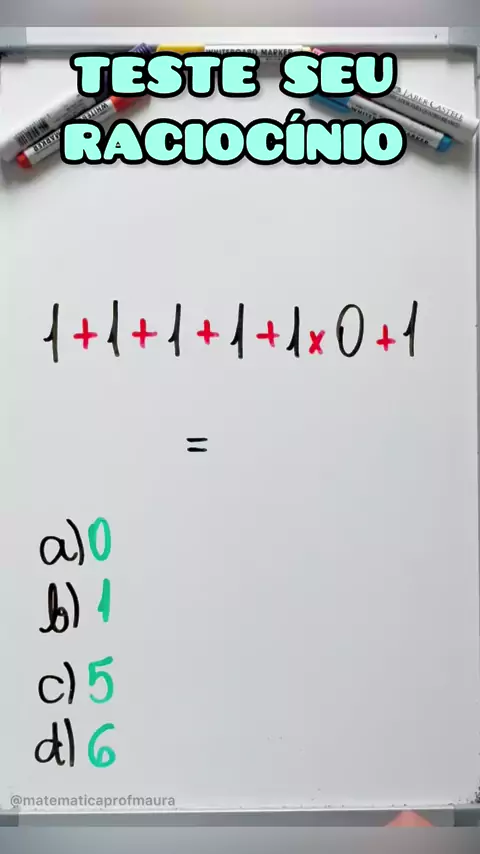 TESTE SEU
RACIOCÍNIO
WHITEBOARD MARKER
FABER-CASTELL
1+1+1+1+1x0+1
=
a) 0
b) 1
c) 5
d) 6
@matematicaprofmaura